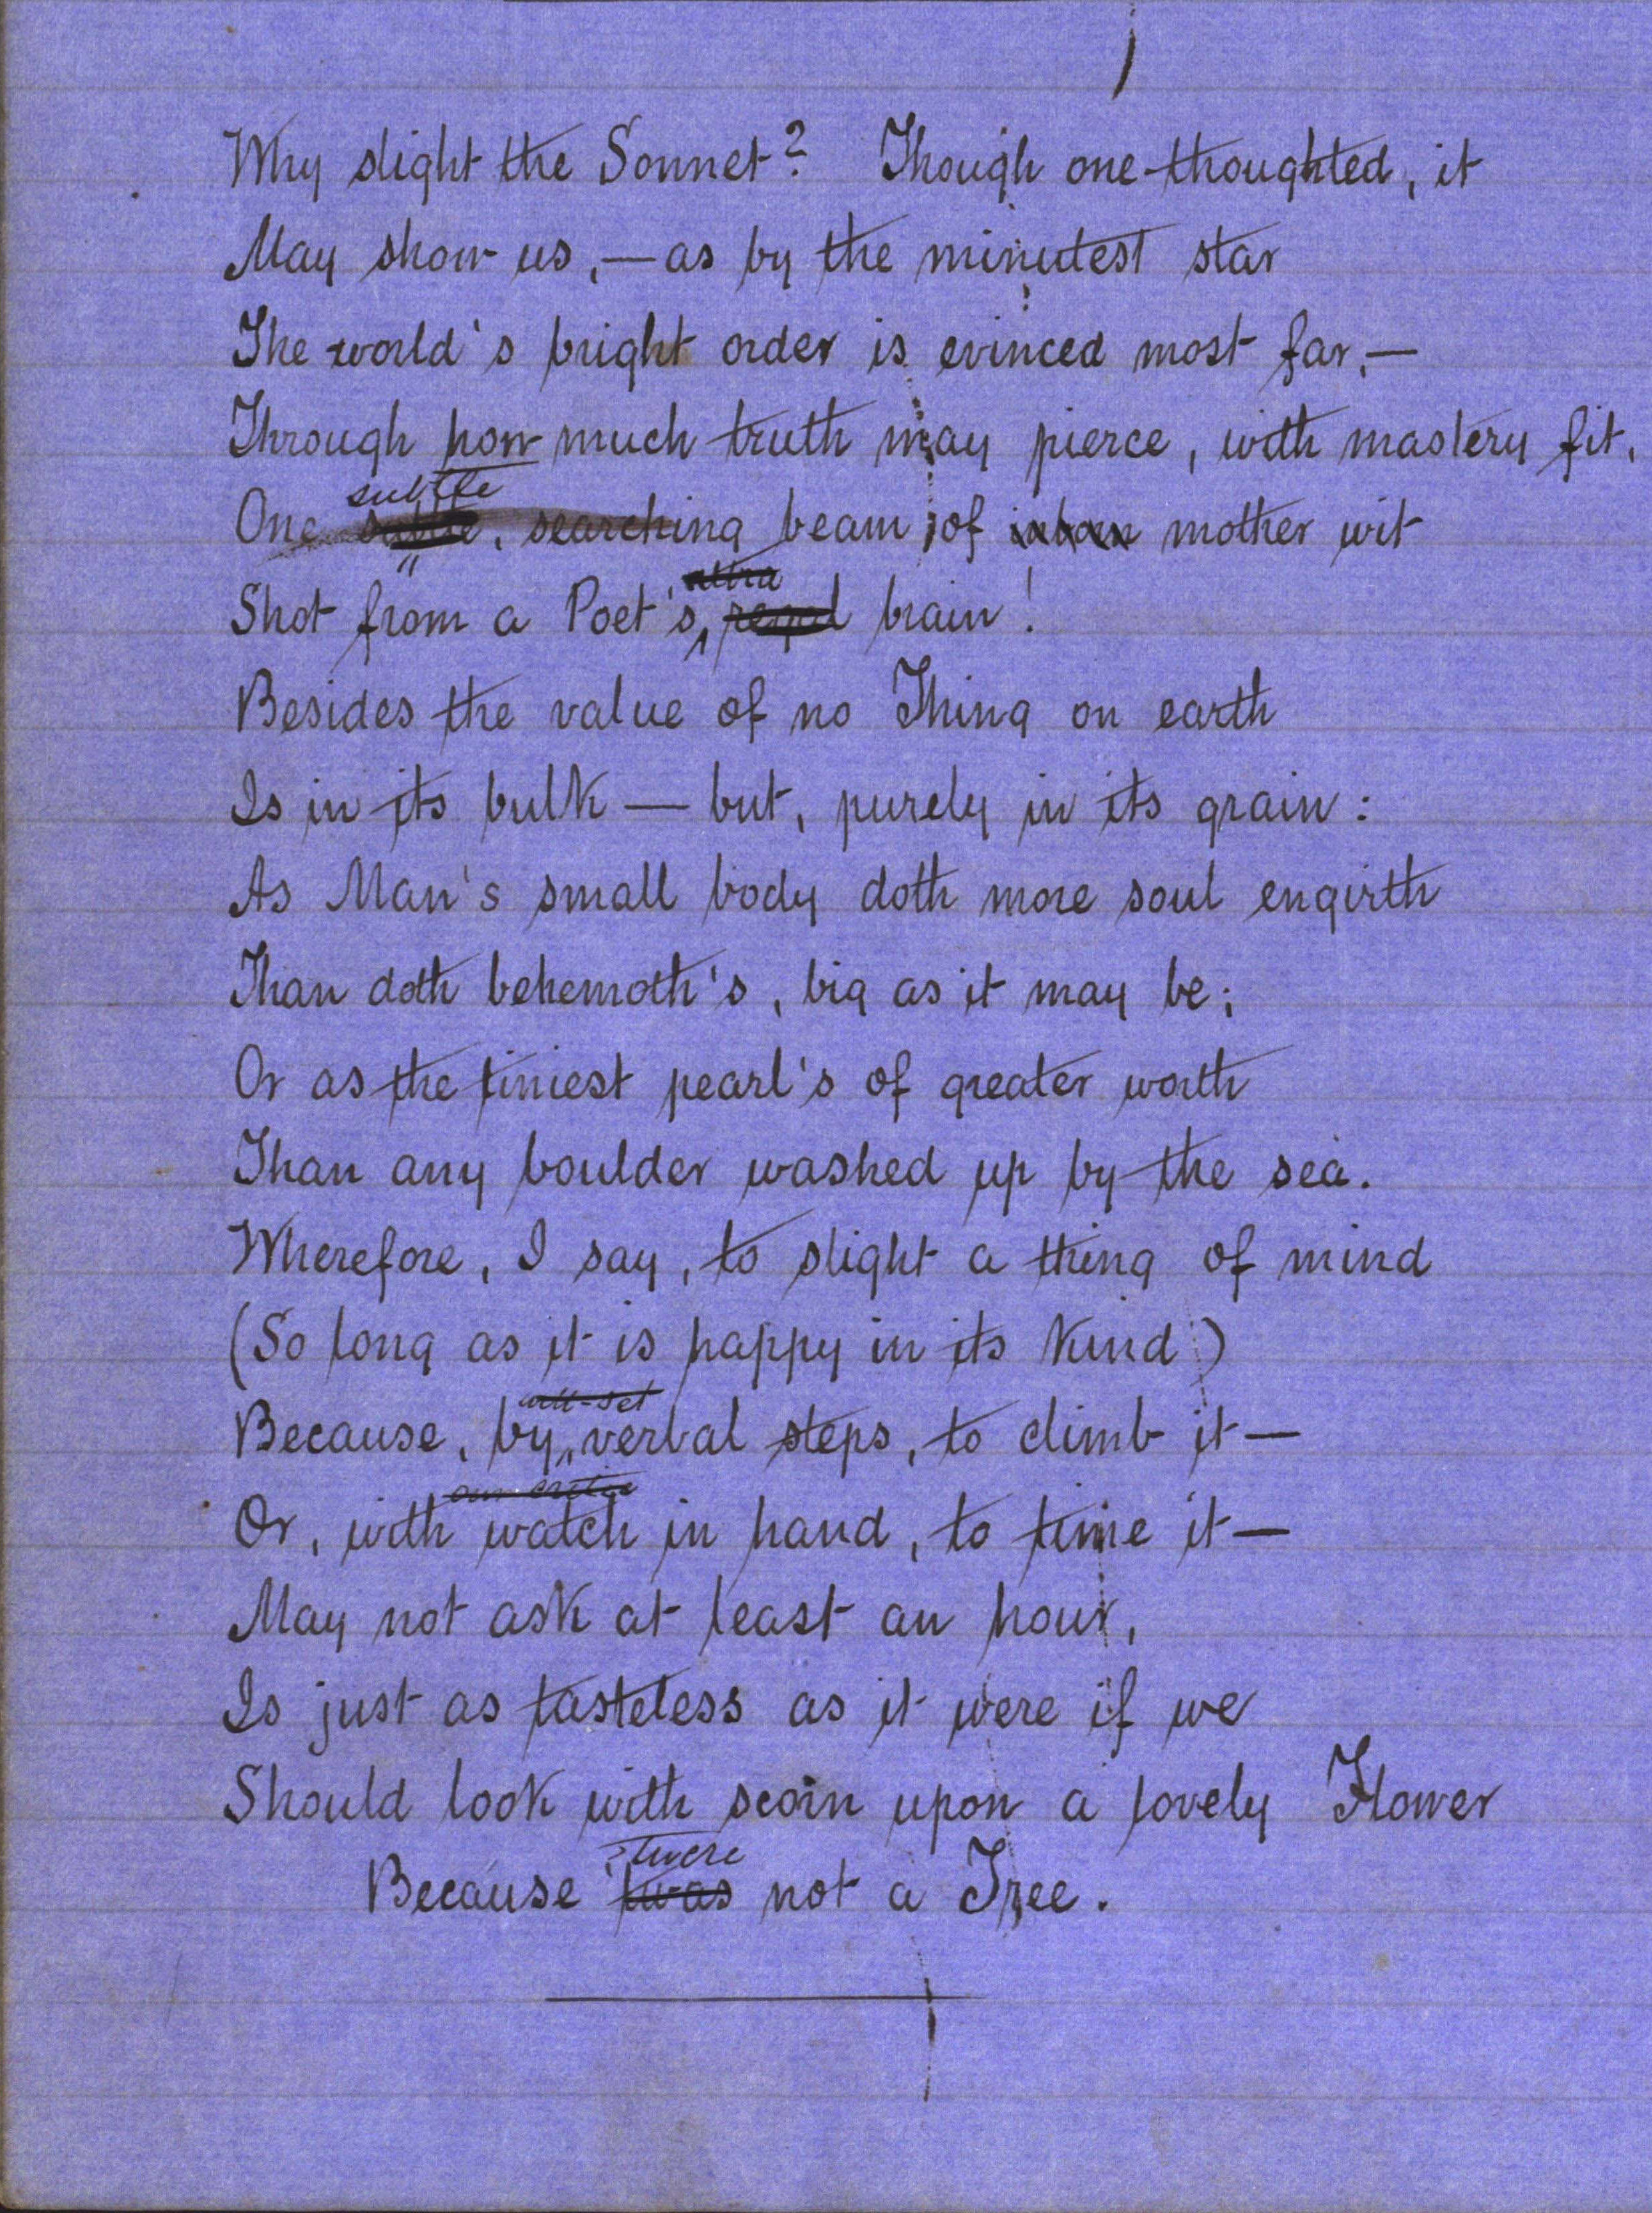 Why slight the Sonnet? Though one-thoughted, it
May show us,—as by the minutest star
The world's bright order is evinced most far,—
Through how much truth may pierce, with mastery fit,
One subtle, searching beam of inborn mother wit
Shot from a Poet's brain!
Besides the value of no Thing on earth
Is in its bulk — but, purely in its grain:
As Man's small body doth more soul engirth
Than doth behemoth's, big as it may be;
Or as the tiniest pearl's of greater worth
Than any boulder washed up by the sea.
Wherefore, I say, to slight a thing of mind
(So long as it is happy in its kind)
Because, by well-set verbal steps, to climb it—
Or, with watch in hand, to time it—
May not ask at least an hour,
Is just as tasteless as it were if we
Should look with scorn upon a lovely Flower
Because 'twas 'twere not a Tree.